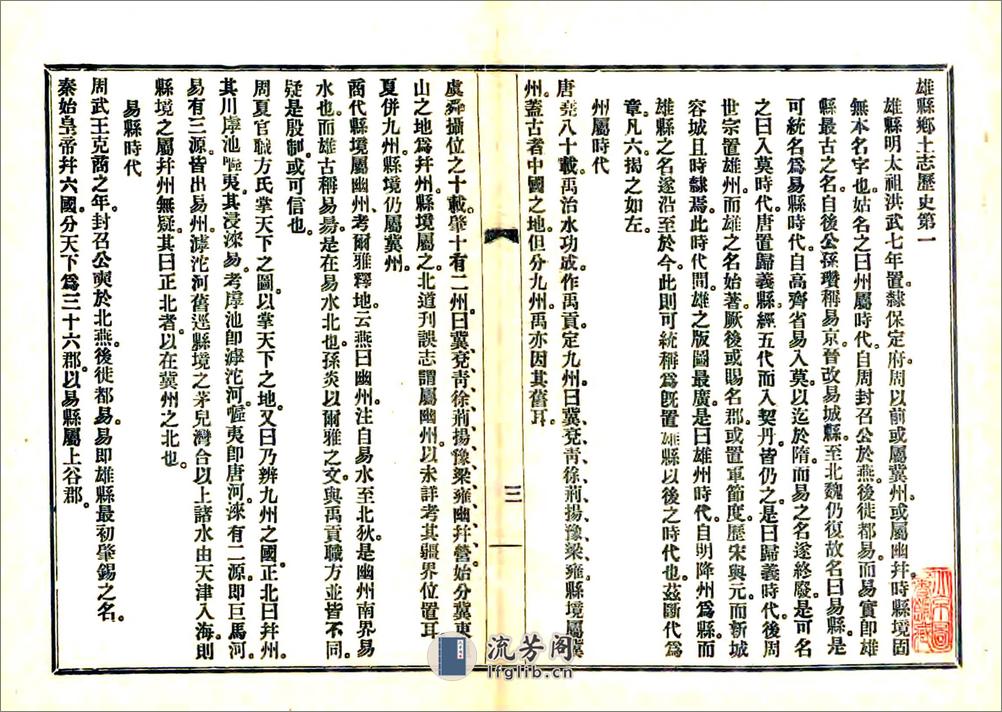 雄縣鄉土志歷史第一
雄縣明太祖洪武七年置隸保定府周以前或屬冀州或屬幽幷時縣境固
無本名字也姑名之曰州屬時代自周封召公於燕後徙都易而易實卽雄
縣最古之名自後公孫瓚稱易京晉改易城縣至北魏仍復故名曰易縣是
可統名爲易縣時代自高齊省易入莫以迄於隋而易之名遂終廢是可名
之曰入莫時代唐置歸義縣經五代而入契丹皆仍之是曰歸義時代後周
世宗置雄州而雄之名始著厥後或賜名郡或置軍節度歷宋與元而新城
容城且時隸焉此時代間雄之版圖最廣是曰雄州時代自明降州爲縣而
雄縣之名遂沿至於今此則可統稱爲旣置雄縣以後之時代也茲斷代爲
章凡六揭之如左
州屬時代
唐堯八十載禹治水功成作禹貢定九州曰冀兗靑徐荊揚豫梁雍縣境屬冀
州蓋古者中國之地但分九州禹亦因其舊耳
三
虞舜攝位之十載肇十有二州曰冀兗靑徐荊揚豫梁雍幽幷營始分冀東
山之地爲幷州縣境屬之北道刊誤志謂屬幽州以未詳考其疆界位置耳
夏併九州縣境仍屬冀州
商代縣境屬幽州考爾雅釋地云燕曰幽州注自易水至北狄是幽州南界易
水也而雄古稱易昜是在易水北也孫炎以爾雅之文與禹貢職方並皆不同
疑是殷制或可信也
周夏官職方氏掌天下之圖以掌天下之地又曰乃辨九州之國正北曰幷州
其川虖池嘔夷其浸淶易考虖池卽滹沱河嘔夷卽唐河淶有二源卽巨馬河
易有三源皆出易州滹沱河舊逕縣境之茅兒灣合以上諸水由天津入海則
縣境之屬幷州無疑其曰正北者以在冀州之北也
易縣時代
周武王克商之年封召公奭於北燕後徙都易易卽雄縣最初肇錫之名
秦始皇帝幷六國分天下爲三十六郡以易縣屬上谷郡
流芳阁
lfglib.cn